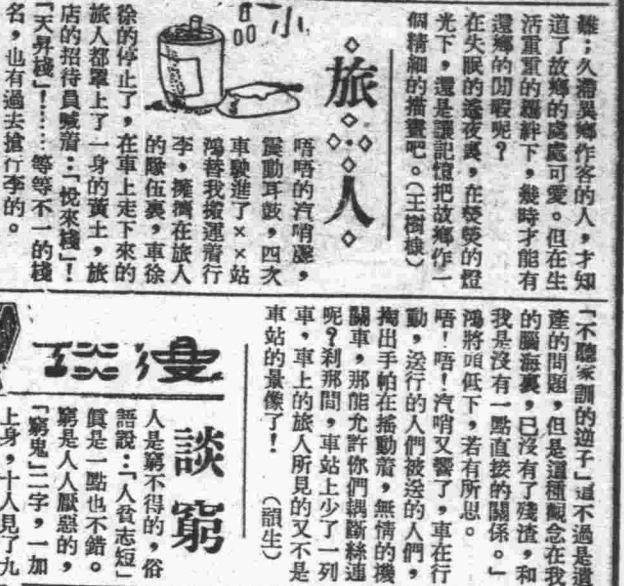 難；久滯異鄉作客的人，才知
道了故鄉的處處可愛。但在生
活重重的羈絆下，幾時才能有
還鄉的閒暇呢？
在失眠的遙夜裏，在熒熒的燈
光下，還是讓記憶把故鄉作一
個精細的描畫吧。（王樹棣）
旅人
唔唔的汽哨聲，
震動耳鼓，四次
車駛進了××站
鴻替我搬運着行
李，擁擠在旅人
的隊伍裏，車徐
徐的停止了，在車上走下來的
旅人都罩上了一身的黃土，旅
店的招待員喊着：「悅來棧」！
「天昇棧」！……等等不一的棧
名，也有過去搶行李的。
「不聽家訓的逆子」這不過是遺
產的問題，但是這種觀念在我
的腦海裏，已沒有了殘渣，和
我是沒有一點直接的關係。」
鴻將頭低下，若有所思。
唔！唔！汽哨又響了，車在行
動，送行的人們被送的人們，
掏出手帕在搖動着，無情的機
關車，那能允許你們藕斷絲連
呢？剎那間，車站上少了一列
車，車上的旅人所見的又不是
車站的景像了！（韻生）
談窮
人是窮不得的，俗
語說：「人貧志短」
價是一點也不錯。
窮是人人厭惡的，
「窮鬼」二字，一加
上身，十人見了九